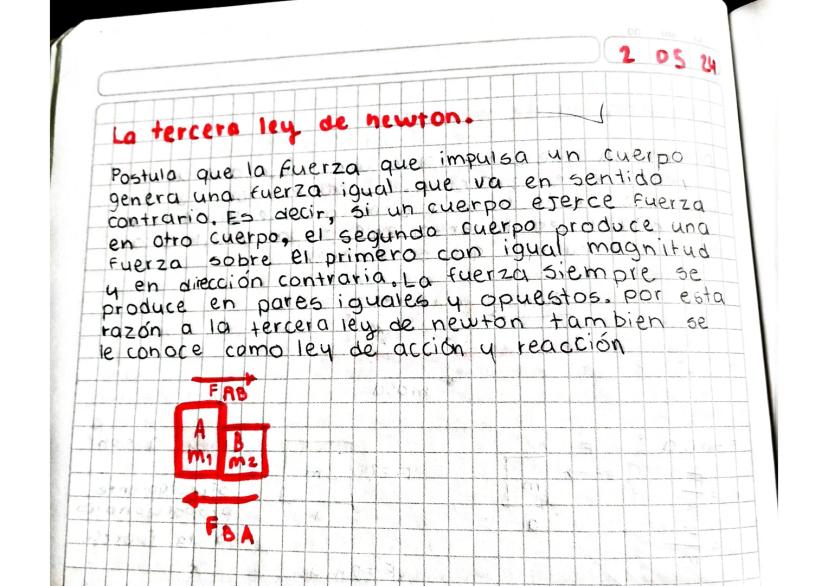 2 05 24
La tercera ley de newton.
Postula que la fuerza que impulsa un cuerpo
genera una fuerza igual que va en sentido
contrario. Es decir, si un cuerpo ejerce fuerza
en otro cuerpo, el segundo cuerpo produce una
fuerza sobre el primero con igual magnitud
y en dirección contraria. La fuerza siempre se
produce en pares iguales y opuestos. por esta
razón a la tercera ley de newton tambien se
le conoce como ley de acción y reacción
FAB
A
B
m1
m2
FBA